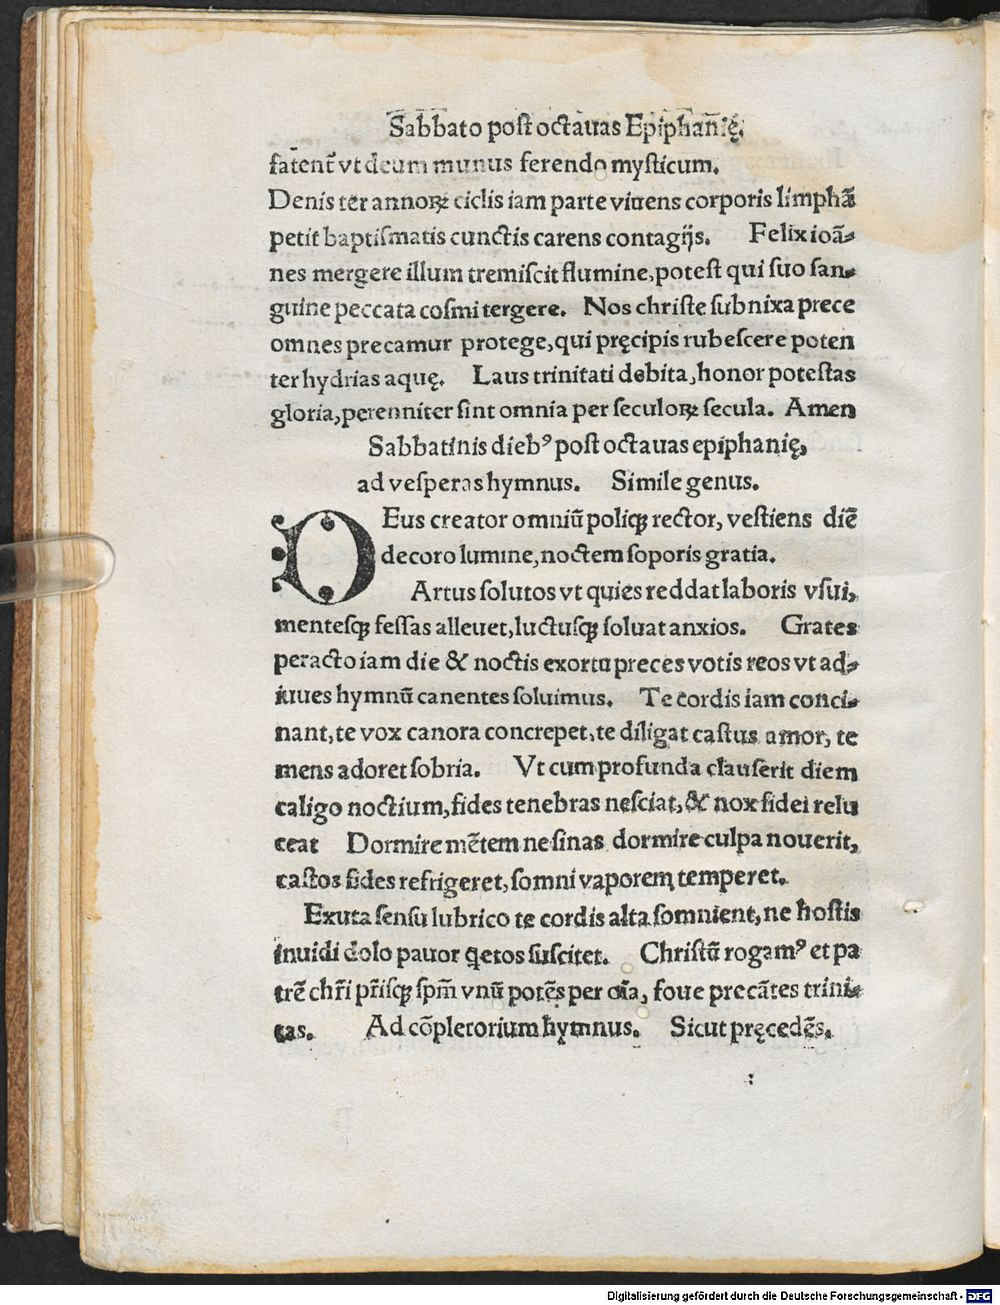 Sabbato post octauas Epiphan̄ię.
fatent᷑ vt deum munus ferendo mysticum.
Denis ter annoꝝ ciclis iam parte viuens corporis limphā
petit baptismatis cunctis carens contagijs. Felix ioā⸗
nes mergere illum tremiscit flumine, potest qui suo san⸗
guine peccata cosmi tergere. Nos christe subnixa prece
omnes precamur protege, qui pręcipis rubescere poten
ter hydrias aquę. Laus trinitati debita, honor potestas
gloria, perenniter sint omnia per seculoꝝ secula. Amen
Sabbatinis dieb᾽ post octauas epiphanię,
ad vesperas hymnus. Simile genus.
DEus creator omniū poliqꝫ rector, vestiens diē
decoro lumine, noctem soporis gratia.
Artus solutos vt quies reddat laboris vsui,
mentesqꝫ fessas alleuet, luctusqꝫ soluat anxios. Grates
peracto iam die & noctis exortu preces votis reos vt ad⸗
iuues hymnū canentes soluimus. Te cordis iam conci⸗
nant, te vox canora concrepet, te diligat castus amor, te
mens adoret sobria. Vt cum profunda clauserit diem
caligo noctium, fides tenebras nesciat, & nox fidei relu
ceat Dormire mētem ne sinas dormire culpa nouerit,
castos fides refrigeret, somni vaporem temperet.
Exuta sensu lubrico te cordis alta somnient, ne hostis
inuidi dolo pauor q̇etos suscitet. Christū rogam᾽ et pa
trē chr̄i pr̄isqꝫ spm̄ vnū potēs per oīa, foue precātes trini⸗
tas. Ad cōpletorium hymnus. Sicut pręcedēs.
Digitalisierung gefördert durch die Deutsche Forschungsgemeinschaft - DFG